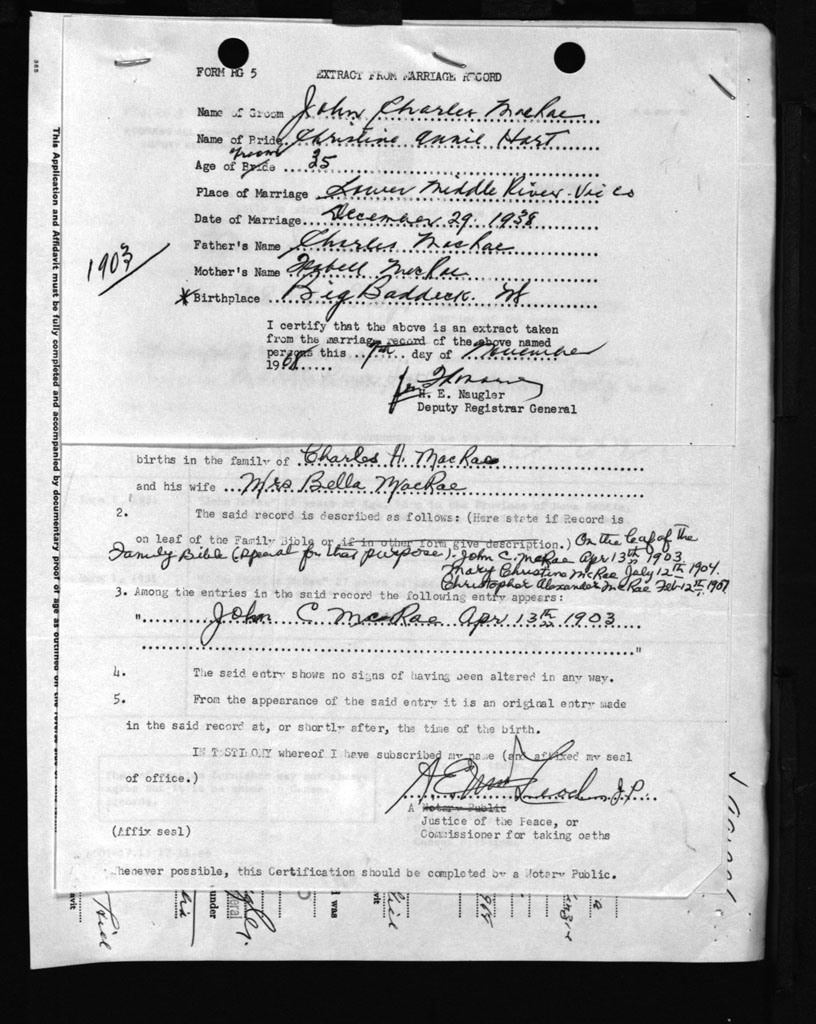 FORM RG 5 EXTRACT FROM MARRIAGE RECORD
Name of Groom John Charles MacRae
Name of Bride Christine Annie Hart
Groom
Age of Bride 35
Place of Marriage Lower Middle River. Vic Co
Date of Marriage December 29. 1938
Father's Name Charles MacRae
1903
Mother's Name McRae
X Birthplace Big Baddeck. NS
I certify that the above is an extract taken
from the marriage record of the above named
persons this 7th day of November
1968
H. E. Naugler
Deputy Registrar General
births in the family of Charles H. MacRae
and his wife Mrs Bella MacRae
2. The said record is described as follows: (Here state if Record is
on leaf of the Family Bible or if in other form give description.) On the leaf of the
Family Bible (special for that purpose). John C. McRae Apr 13th 1903
Mary Christine McRae July 12th 1904.
Christopher Alexander McRae Feb 12th, 1907
3. Among the entries in the said record the following entry appears:
" John C MacRae Apr 13th 1903
"
4. The said entry shows no signs of having been altered in any way.
5. From the appearance of the said entry it is an original entry made
in the said record at, or shortly after, the time of the birth.
IN TESTIMONY whereof I have subscribed my name (and affixed my seal
of office.)
J.P.
A Notary Public
Justice of the Peace, or
Commissioner for taking oaths
(Affix seal)
Whenever possible, this Certification should be completed by a Notary Public.
This Application and Affidavit must be fully completed and accompanied by documentary proof of age as outlined on the
under
I was